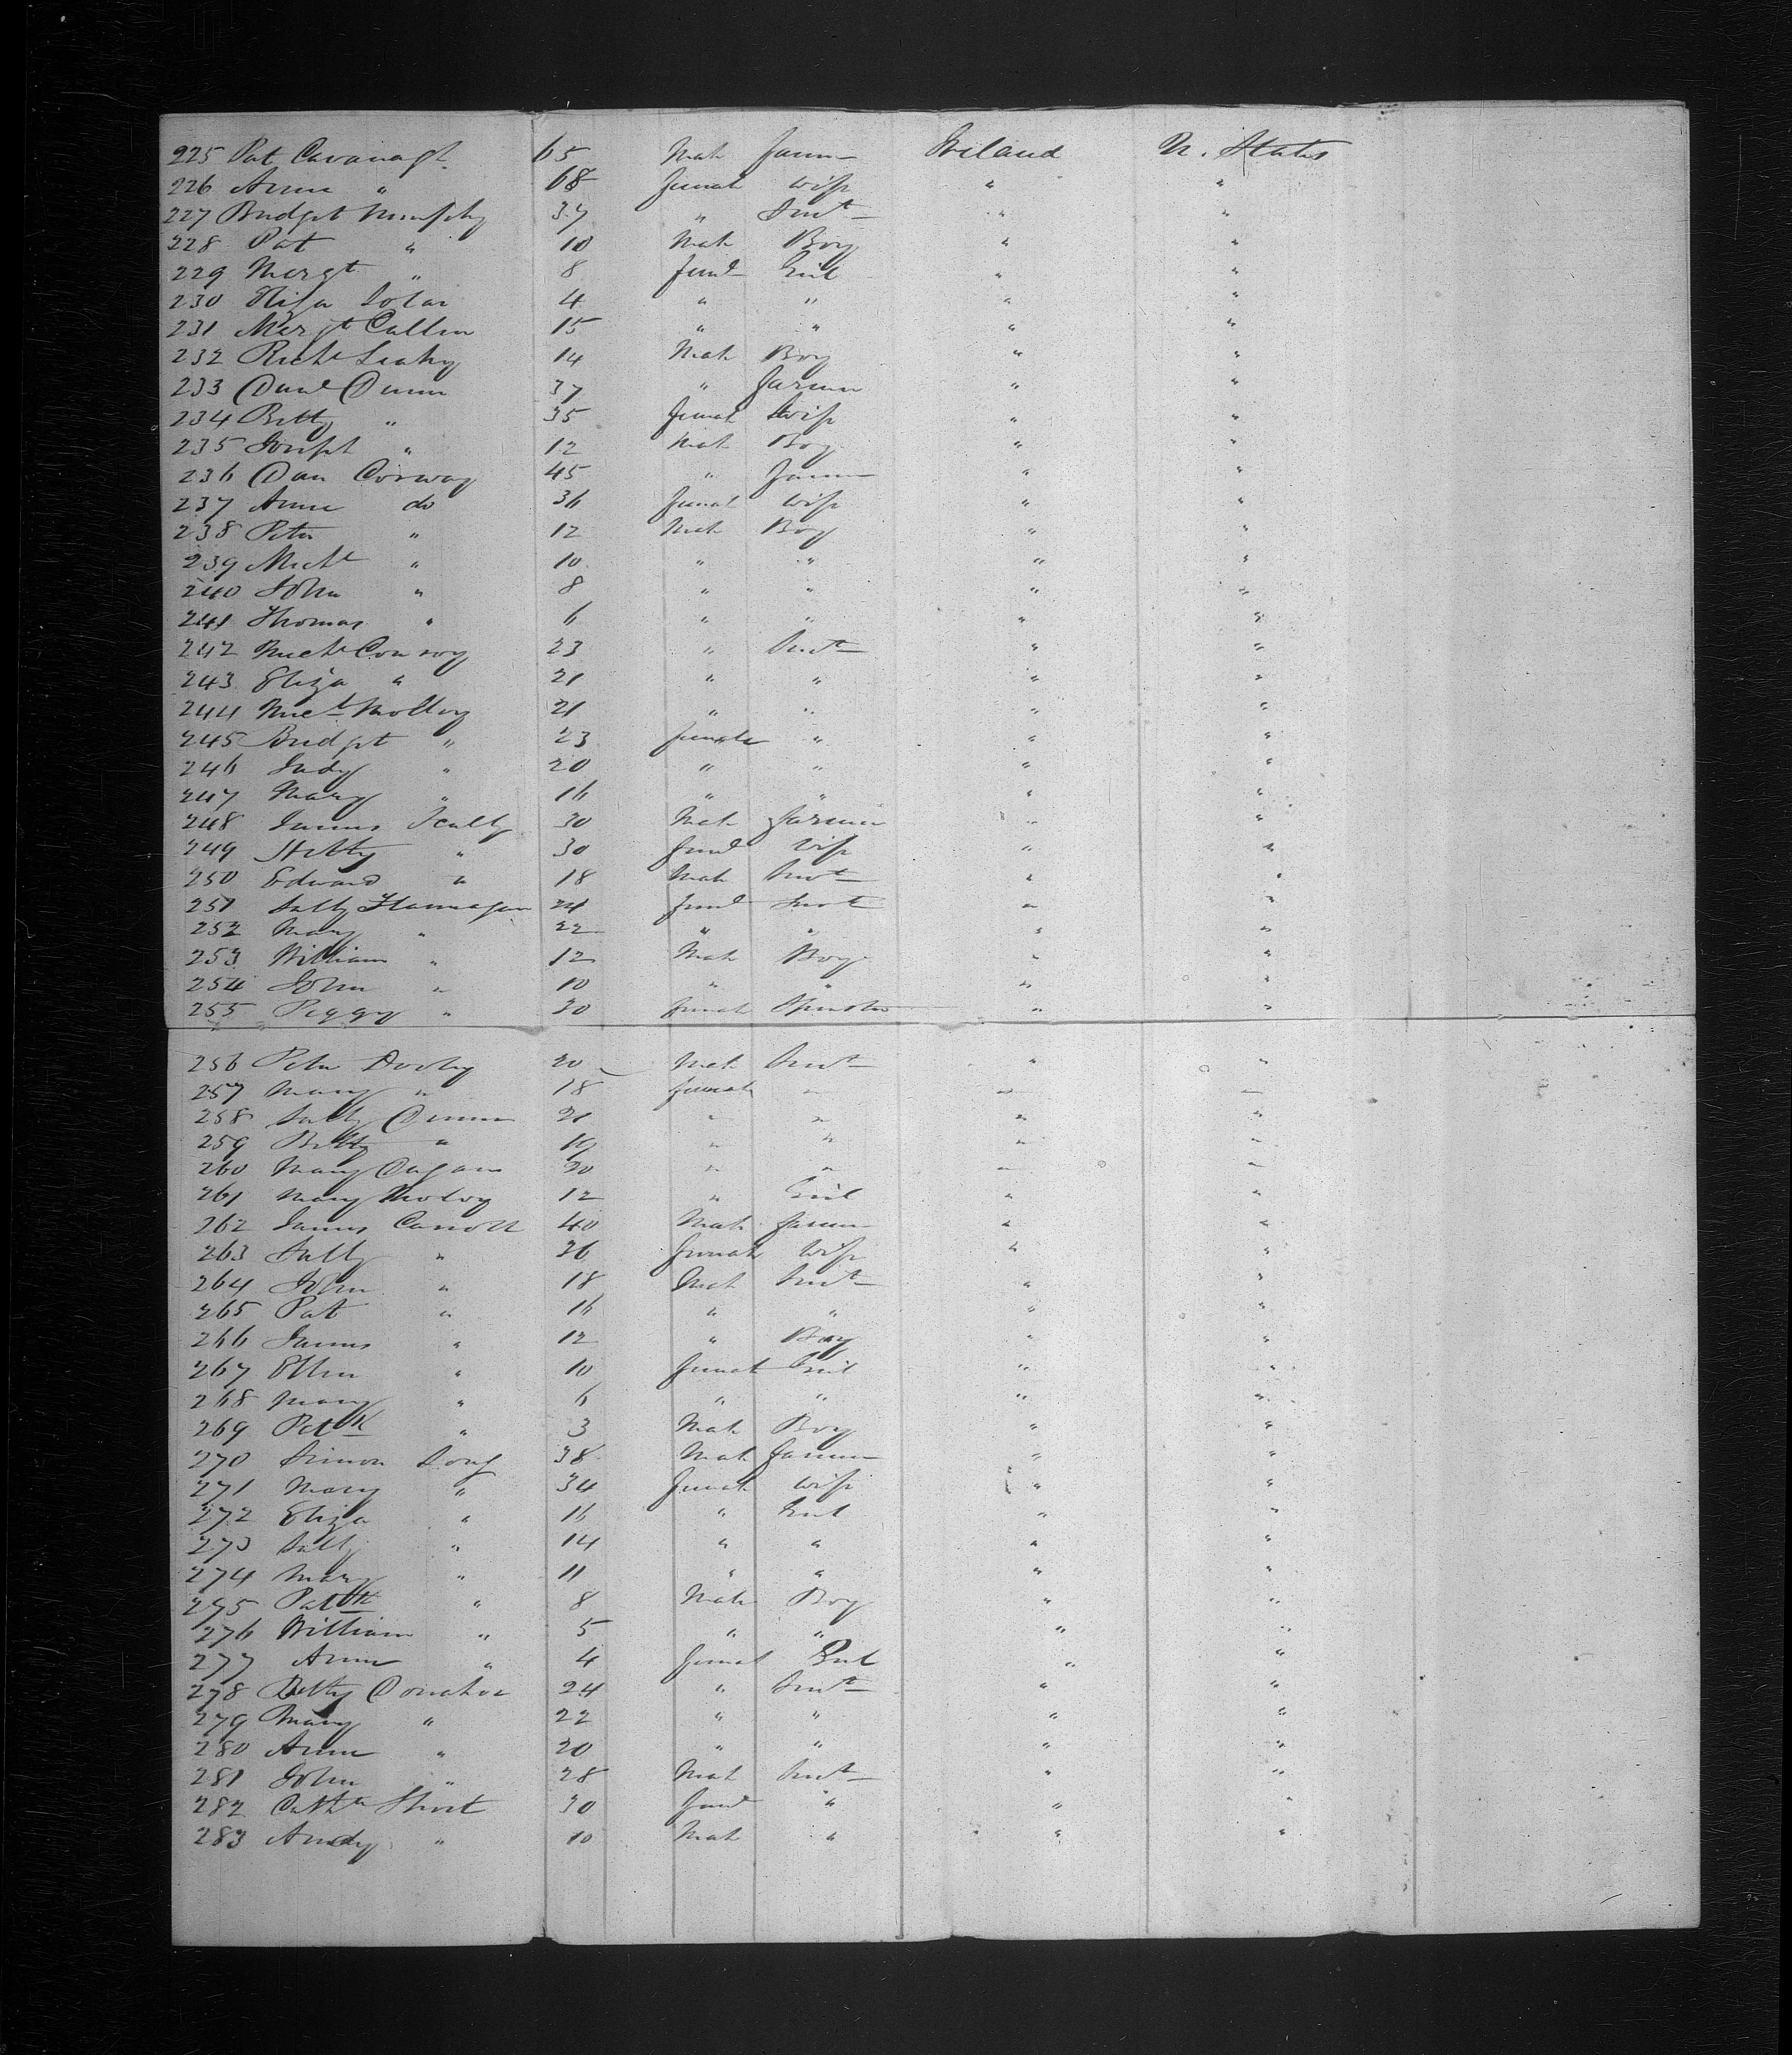 225 Pat Cavanagh 65 Male Farmer Ireland U. States
226 Anne " 68 female wife " "
227 Bridget Murphy 37 " Servt " "
228 Pat " 10 Male Boy " "
229 Margt " 8 feml Girl " "
230 Eliza 4 " " " "
231 Margt Cullen 15 " " " "
232 Richd Leahy 14 Male Boy " "
233 Danl Dunn 37 " Farmer " "
234 Betty " 35 female Wife " "
235 Joseph " 12 Male Boy " "
236 Dan Conway 45 " Farmer " "
237 Anne do 36 female wife " "
238 Peter " 12 Male Boy " "
239 Michl " 10 " " " "
240 John " 8 " " " "
241 Thomas " 6 " " " "
242 Michl Conroy 23 " Servt " "
243 Eliza " 21 " " " "
244 Micl Molloy 21 " " " "
245 Bridget " 23 female " " "
246 Judy " 20 " " " "
247 Mary " 16 " " " "
248 James Scully 30 Male Farmer " "
249 Hetty " 30 feml Wife " "
250 Edward " 18 Male Servt " "
251 Sally Flannagan 24 feml Servt " "
252 Mary " 22 " " " "
253 William " 12 Male Boy " "
254 John " 10 " " " "
255 Peggy " 20 female Spinster " "
256 Peter Dooley 20 Male Servt " "
257 Mary " 18 female " " "
258 Sally Dunn 21 " " " "
259 Betty " 19 " " " "
260 Mary Dugan 20 " " " "
261 Mary Moloy 12 " Girl " "
262 James Carroll 40 Male Farmer " "
263 Sally " 36 female Wife " "
264 John " 18 Male Servt " "
265 Pat " 16 " " " "
266 James " 12 " Boy " "
267 Ellen " 10 female Girl " "
268 Mary " 6 " " " "
269 Patk " 3 Male Boy " "
270 Simon Long 38 Male Farmer " "
271 Mary " 34 female wife " "
272 Eliza " 16 " Girl " "
273 Sally " 14 " " " "
274 Mary " 11 " " " "
275 Patk " 8 Male Boy " "
276 William " 5 " " " "
277 Anne " 4 female Girl " "
278 Betty Donahoe 24 " Servt " "
279 Mary " 22 " " " "
280 Anne " 20 " " " "
281 John " 28 Male Servt " "
282 Cathn Short 30 feml " " "
283 Andy " 10 Male " " "